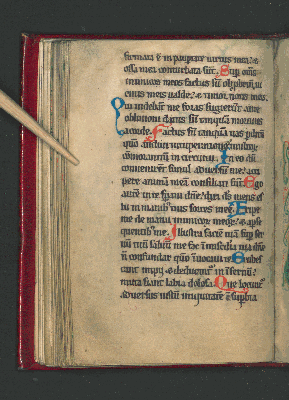 firmata ē in paupertate uirtus mea: &
ossa mea conturbata sūt. Sup om̄s
inimicos meos factus sū obprobriū, &
uicinis meis ualde: & timor notis meis.
Qui uidebāt me foras fugierūt ame:
obliuioni datus sū tanquā mortuus
acorde. Factus sū tanquā uas pditū
qm̄ audiui uituperationem multorū
cōmorantiū in circuitu. In eo dū
conuenirēt simul aduersū me: acci
pere animā meā consiliati sūt. Ego
autē in te spaui dn̄e: dixi ds meus es
tu in manib; tuis sortes mee. Eripe
me de manu inimicor̄ meor̄: & apse
quentib; me. Illustra faciē tuā sup ser
uū tuū saluū me fac in mīa tua dn̄e
n̄ confundar qm̄ inuocaui te. Erubes
cant impii & deducant̄ in īfernū:
muta fiant labia dolosa. Que locunt̄
aduersus iustū iniquitatē ī supbia